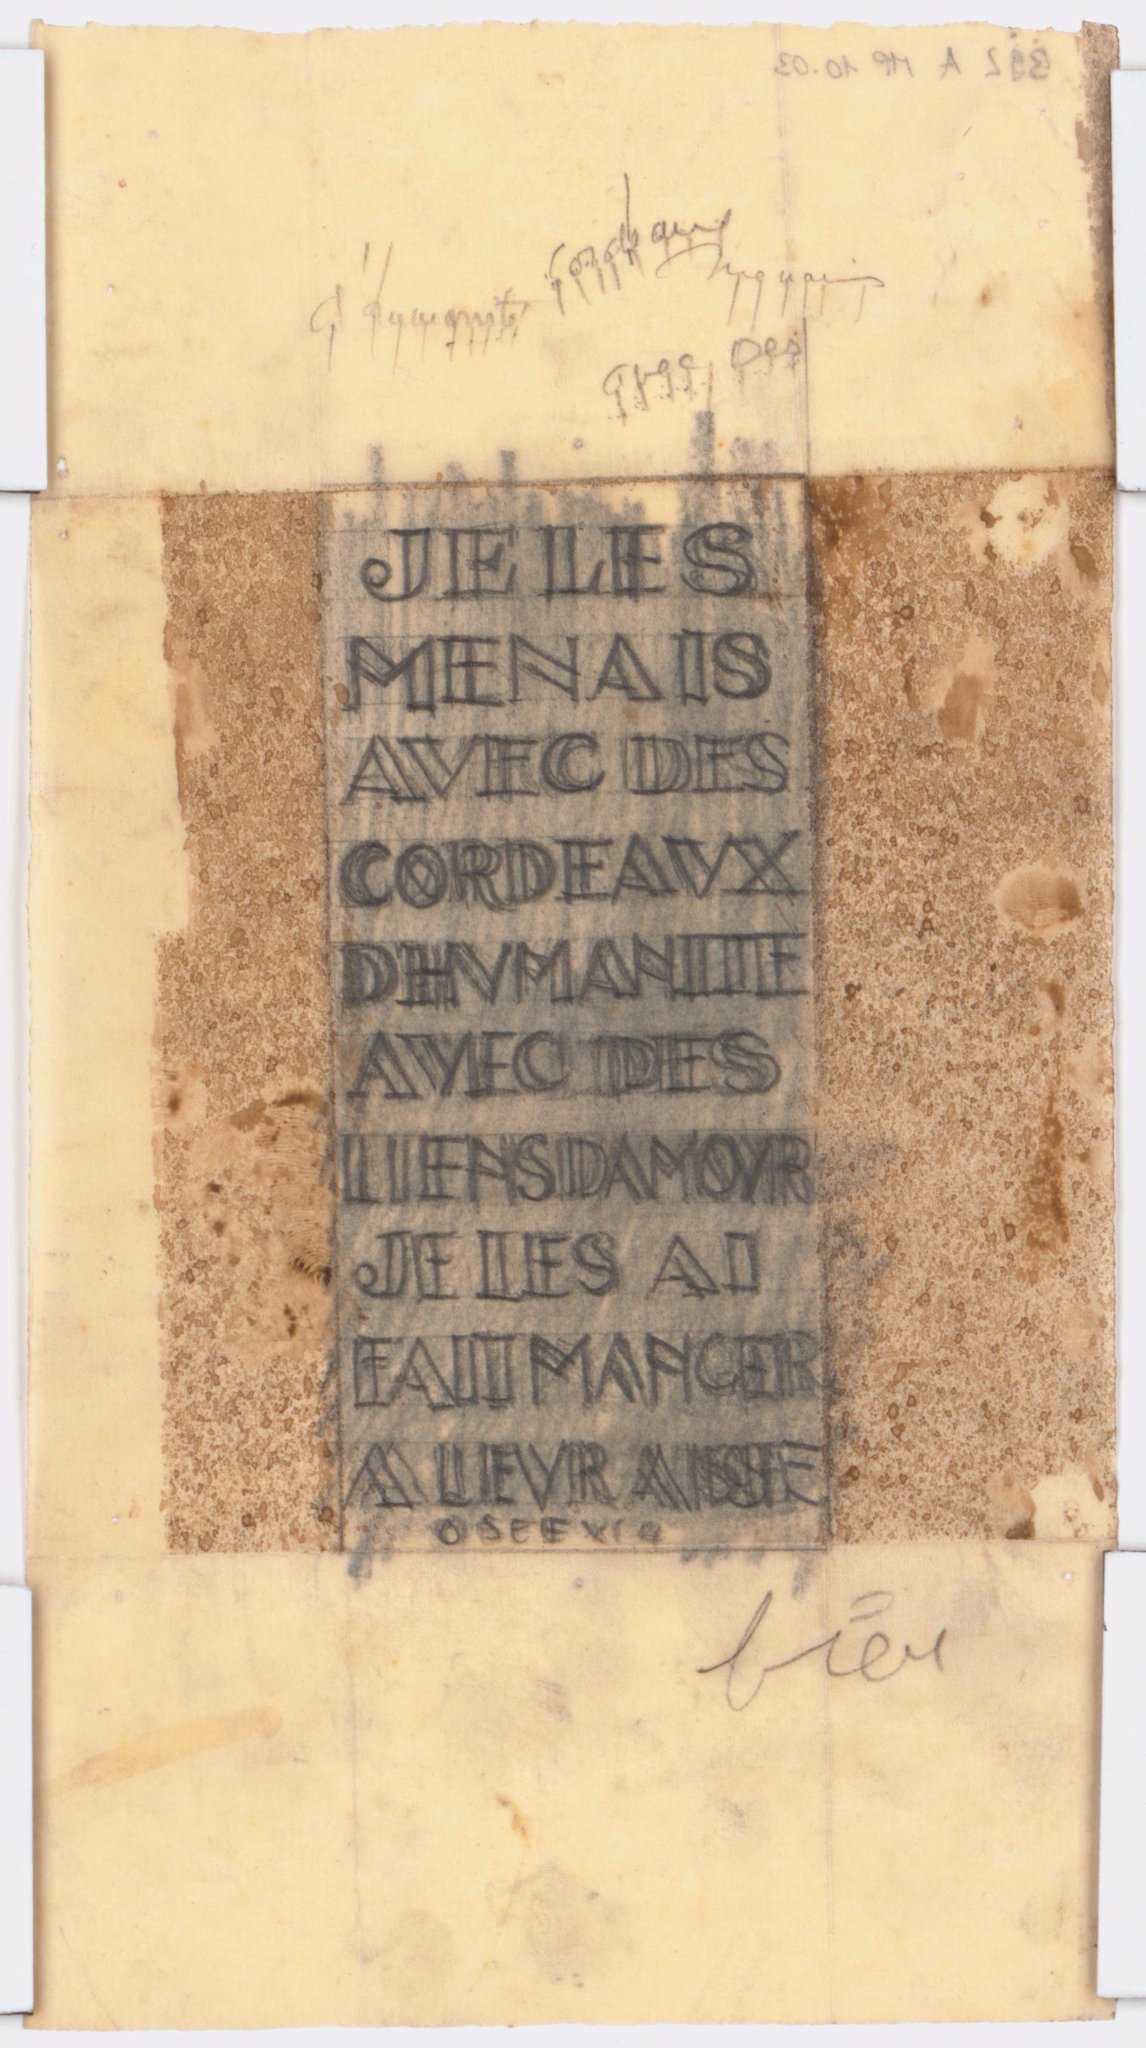 392 A MP 10.03
avec des
JE LES
MENAIS
AVEC DES
CORDEAVX
D'HVMANITE
AVEC DES
LIENS D'AMOVR
JE LES AI
FAIT MANGER
A LEVR AISE
OSEE XI 4
bien